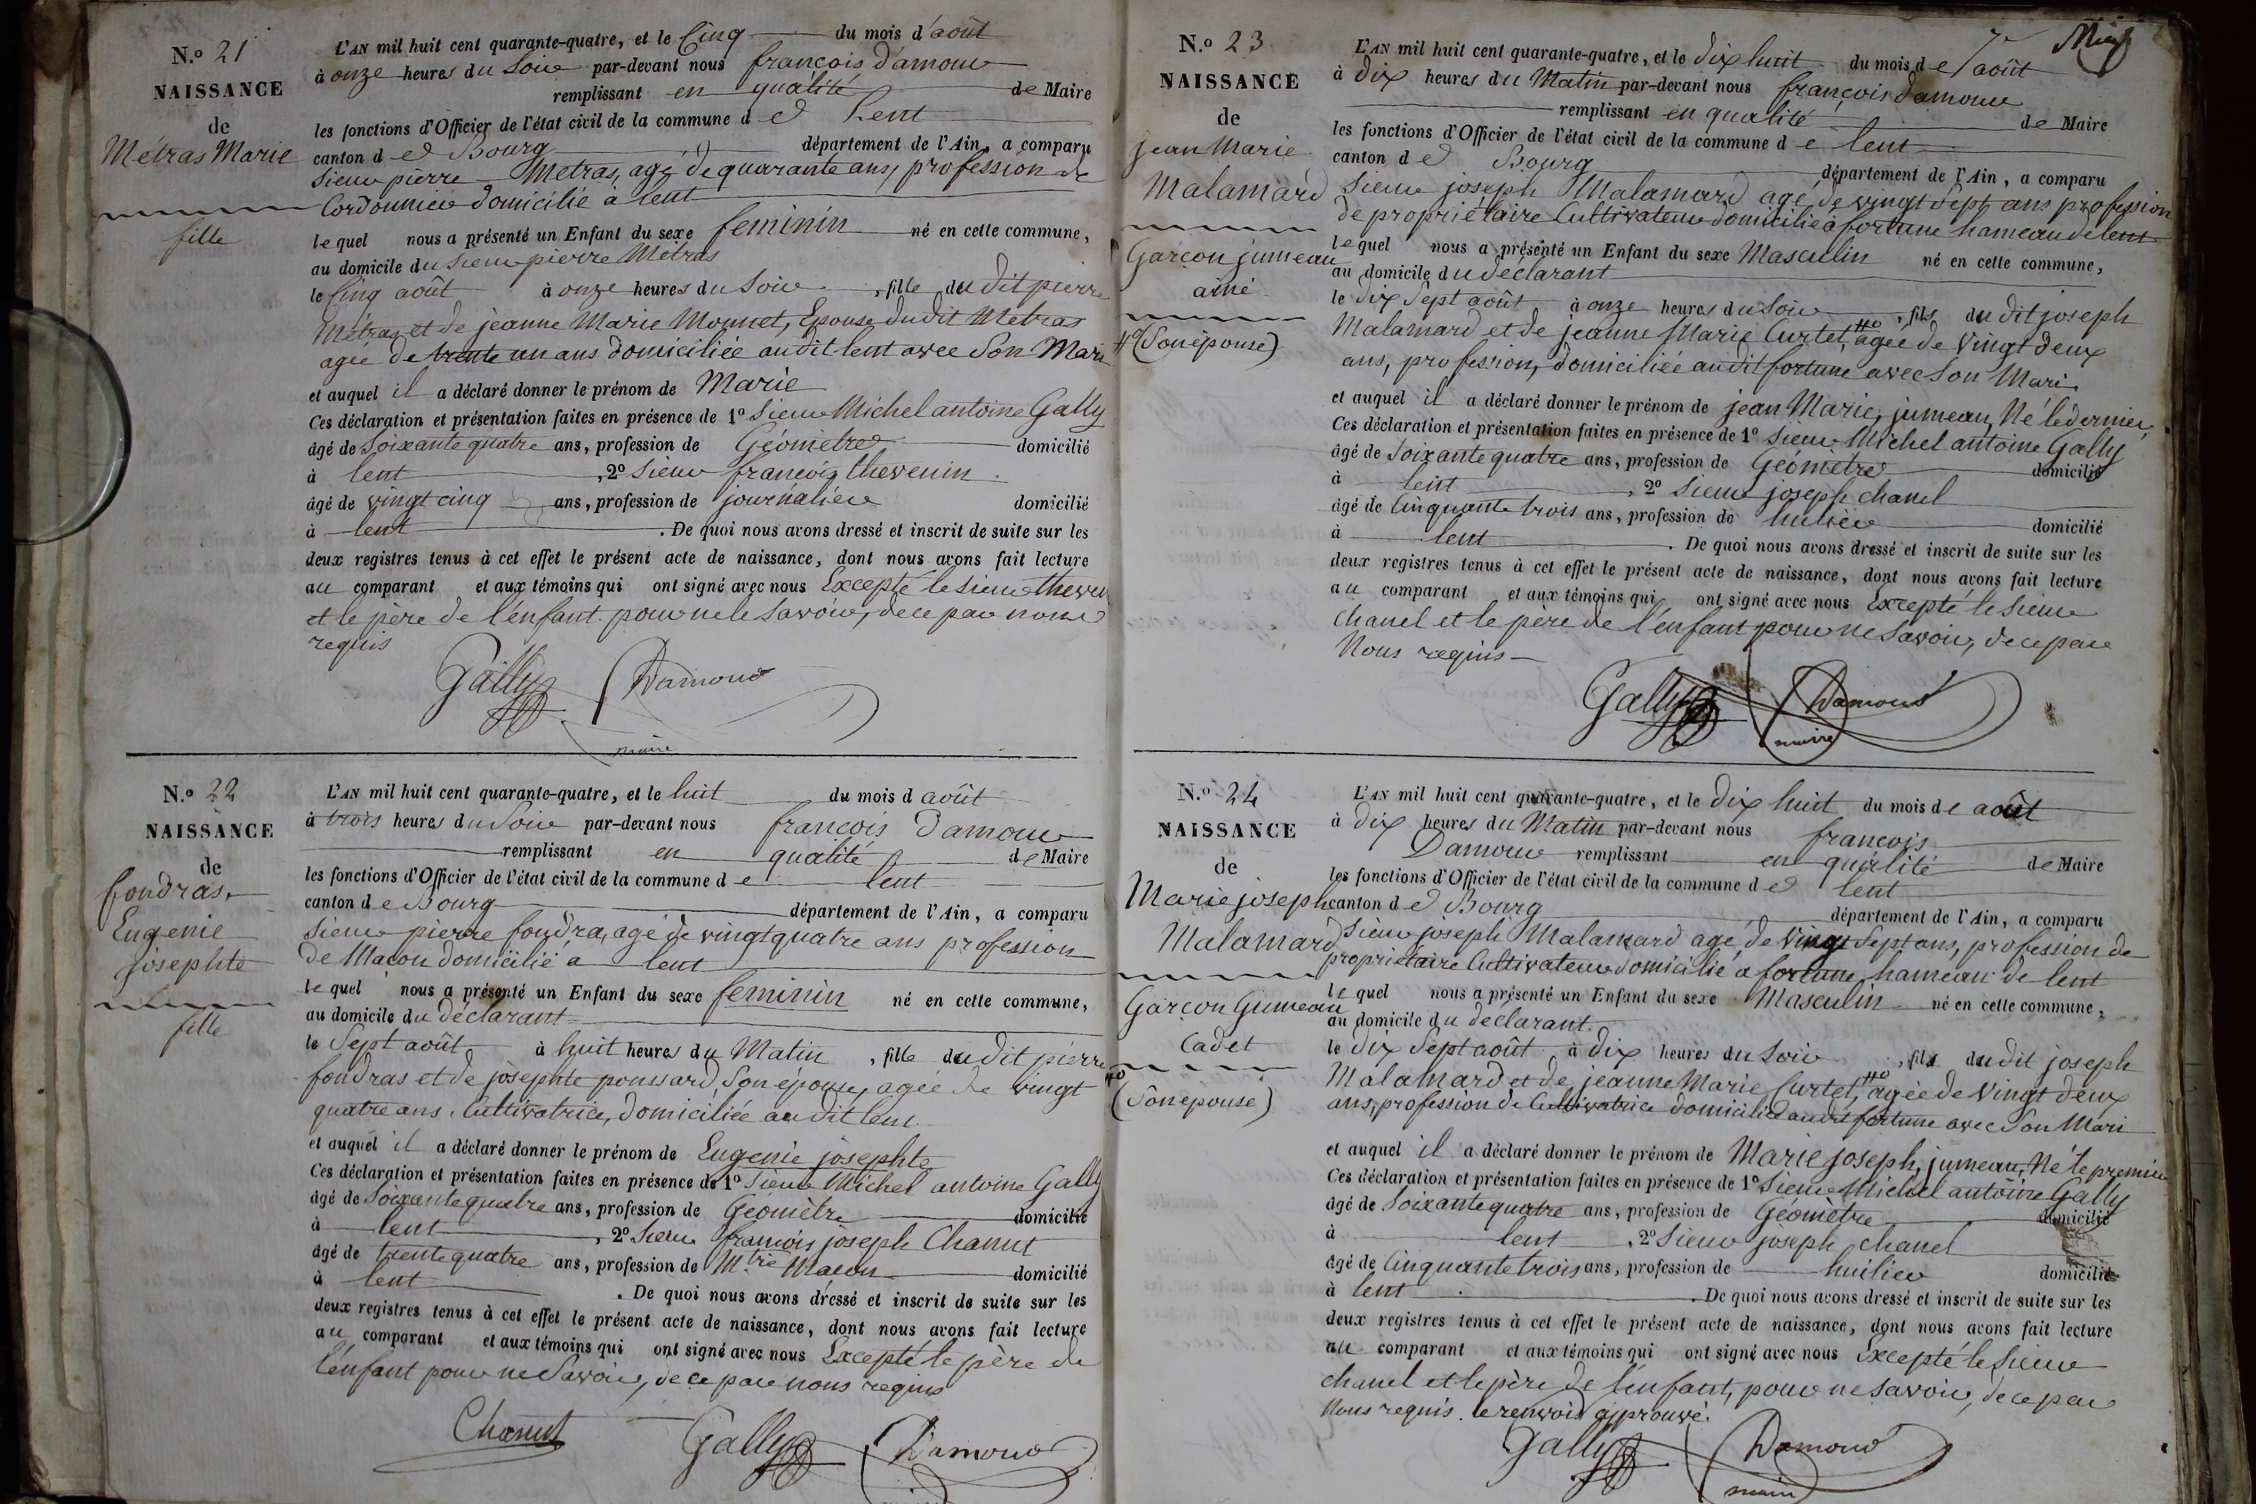 N.o 21
NAISSANCE
de
Métras Marie
fille
L'AN mil huit cent quarante-quatre, et le Cinq du mois d'août
à onze heures du Soir par-devant nous françois D'amour
remplissant en qualité de Maire
les fonctions d'Officier de l'état civil de la commune de Lent
canton de Bourg département de l'Ain, a comparu
Sieur pierre Metras, agé de quarante ans, profession de
Cordonnier domicilié à lent
lequel nous a présenté un Enfant du sexe feminin né en cette commune,
au domicile du Sieur pierre Métras
le Cinq août à onze heures du Soir, fille du dit pierre
Métras et de jeanne Marie Monnet, Epouse du dit Metras
agée de trente un ans domiciliée au dit lent avec Son Mari
et auquel il a déclaré donner le prénom de Marie
Ces déclaration et présentation faites en présence de 1o Sieur Michel antoine Gally
âgé de Soixante quatre ans, profession de Géomètre domicilié
à lent, 2o Sieur françois thevenin
âgé de vingt cinq ans, profession de journalier domicilié
à lent. De quoi nous avons dressé et inscrit de suite sur les
deux registres tenus à cet effet le présent acte de naissance, dont nous avons fait lecture
au comparant et aux témoins qui ont signé avec nous Excepté le Sieur
et le père de l'enfant pour ne le Savoir, de ce par nous
requis
Gally Damour
maire
N.o 22
NAISSANCE
de
fondras
Eugenie
josephte
fille
L'AN mil huit cent quarante-quatre, et le huit du mois d août
à trois heures du Soir par-devant nous françois Damour
remplissant en qualité de Maire
les fonctions d'Officier de l'état civil de la commune de lent
canton de Bourg département de l'Ain, a comparu
Sieur pierre fondra, agé de vingt quatre ans profession
de Macon domicilié à lent
lequel nous a présenté un Enfant du sexe feminin né en cette commune,
au domicile du déclarant
le Sept août à huit heures du Matin, fille du dit pierre
fondras et de josephte poussard, Son épouse, agée de vingt
quatre ans, Cultivatrice, domiciliée au dit lent
et auquel il a déclaré donner le prénom de Eugenie josephte
Ces déclaration et présentation faites en présence de 1o Sieur Michel antoine Gally
âgé de Soixante quatre ans, profession de Géomètre domicilié
à lent, 2o Sieur francois joseph Chanut
âgé de trente quatre ans, profession de Mtre Macon domicilié
à lent. De quoi nous avons dressé et inscrit de suite sur les
deux registres tenus à cet effet le présent acte de naissance, dont nous avons fait lecture
au comparant et aux témoins qui ont signé avec nous Excepté le père de
l'enfant pour ne Savoir, de ce par nous requis
Chanut Gally Damour
N.o 23
NAISSANCE
de
jean Marie
Malamard
Garçon jumeau
ainé
(Son épouse)
L'AN mil huit cent quarante-quatre, et le dix huit du mois de août
à dix heures du Matin par-devant nous françois damour
remplissant en qualité de Maire
les fonctions d'Officier de l'état civil de la commune de lent
canton de Bourg département de l'Ain, a comparu
Sieur joseph Malamard agé de vingt Sept ans profession
de propriétaire Cultivateur domicilié à fortune hameau de lent
lequel nous a présenté un Enfant du sexe Masculin né en cette commune,
au domicile du déclarant
le dix Sept août à onze heures du Soir, fils du dit joseph
Malamard et de jeanne Marie Curtet, agée de vingt deux
ans, profession, domiciliée au dit fortune avec Son Mari
et auquel il a déclaré donner le prénom de jean Marie, jumeau, Né le dernier
Ces déclaration et présentation faites en présence de 1o Sieur Michel antoine Gally
âgé de Soixante quatre ans, profession de Géomètre domicilié
à lent, 2o Sieur joseph chanel
âgé de Cinquante trois ans, profession de huilier domicilié
à lent. De quoi nous avons dressé et inscrit de suite sur les
deux registres tenus à cet effet le présent acte de naissance, dont nous avons fait lecture
au comparant et aux témoins qui ont signé avec nous Excepté le Sieur
Chanel et le père de l'enfant pour ne Savoir, de ce par
Nous requis
Gally Damour
maire
N.o 24
NAISSANCE
de
Marie joseph
Malamard
Garçon Gumeau
Cadet
(Son épouse)
L'AN mil huit cent quarante-quatre, et le dix huit du mois de août
à dix heures du Matin par-devant nous françois
Damour remplissant en qualité de Maire
les fonctions d'Officier de l'état civil de la commune de lent
canton de Bourg département de l'Ain, a comparu
Sieur joseph Malamard agé de vingt Sept ans, profession de
propriétaire Cultivateur domicilié à fortune, hameau de lent
lequel nous a présenté un Enfant du sexe Masculin né en cette commune,
au domicile du déclarant
le dix Sept août à dix heures du Soir, fils du dit joseph
Malamard et de jeanne Marie Curtet, agée de vingt deux
ans, profession de Cultivatrice domiciliée au dit fortune avec Son Mari
et auquel il a déclaré donner le prénom de Marie joseph, jumeau, Né le premier
Ces déclaration et présentation faites en présence de 1o Sieur Michel antoine Gally
âgé de Soixante quatre ans, profession de Géomètre domicilié
à lent, 2o Sieur joseph chanel
âgé de Cinquante trois ans, profession de huilier domicilié
à lent. De quoi nous avons dressé et inscrit de suite sur les
deux registres tenus à cet effet le présent acte de naissance, dont nous avons fait lecture
au comparant et aux témoins qui ont signé avec nous excepté le Sieur
Chanel et le père de l'enfant, pour ne Savoir, de ce par
Nous requis. le renvois approuvé.
Gally Damour
maire